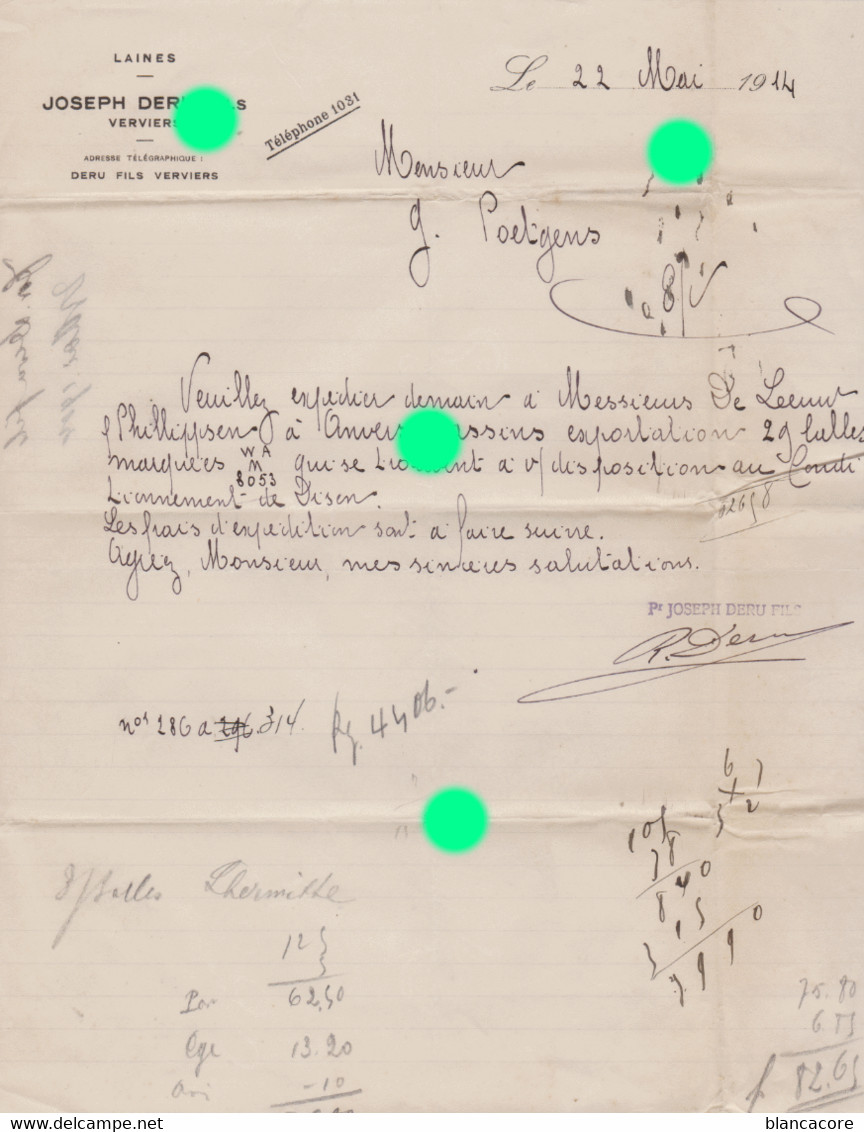 LAINES
JOSEPH DERU FILS
VERVIERS
ADRESSE TÉLÉGRAPHIQUE :
DERU FILS VERVIERS
Téléphone 1031
Le 22 Mai 1914
Monsieur
J. Poetgens
Veuillez expédier demain à Messieurs De Leeuw
& Phillippsen à Anvers bassins exportation 29 balles
marquées WA M 8053 qui se trouvent à v/ disposition au Condi
tionnement de Dison.
Les frais d'expédition sont à faire suivre.
Agréez, Monsieur, mes sincères salutations.
Pr JOSEPH DERU FILS
R. Deru
nos 286 a 296 314
Kg. 4406.-
8/ Balles Lhermitte
125
5
62,50
13.20
-10
67
108
78
840
315
3990
75.80
6.85
f 82.65
blancacore